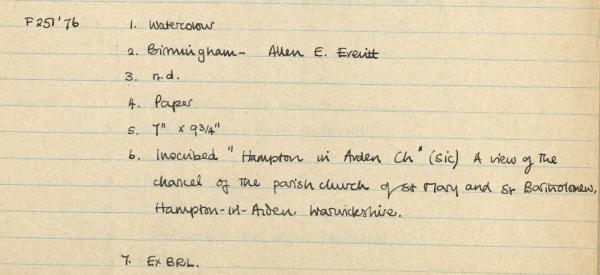 F251'76 1. Watercolour
2. Birmingham - Allen E. Everitt
3. n.d.
4. Paper
5. 7" x 9 3/4"
6. Inscribed "Hampton in Arden Ch" (sic) A view of the
chancel of the parish church of St Mary and St Bartholomew,
Hampton-in-Arden, Warwickshire.
7. Ex BRL.